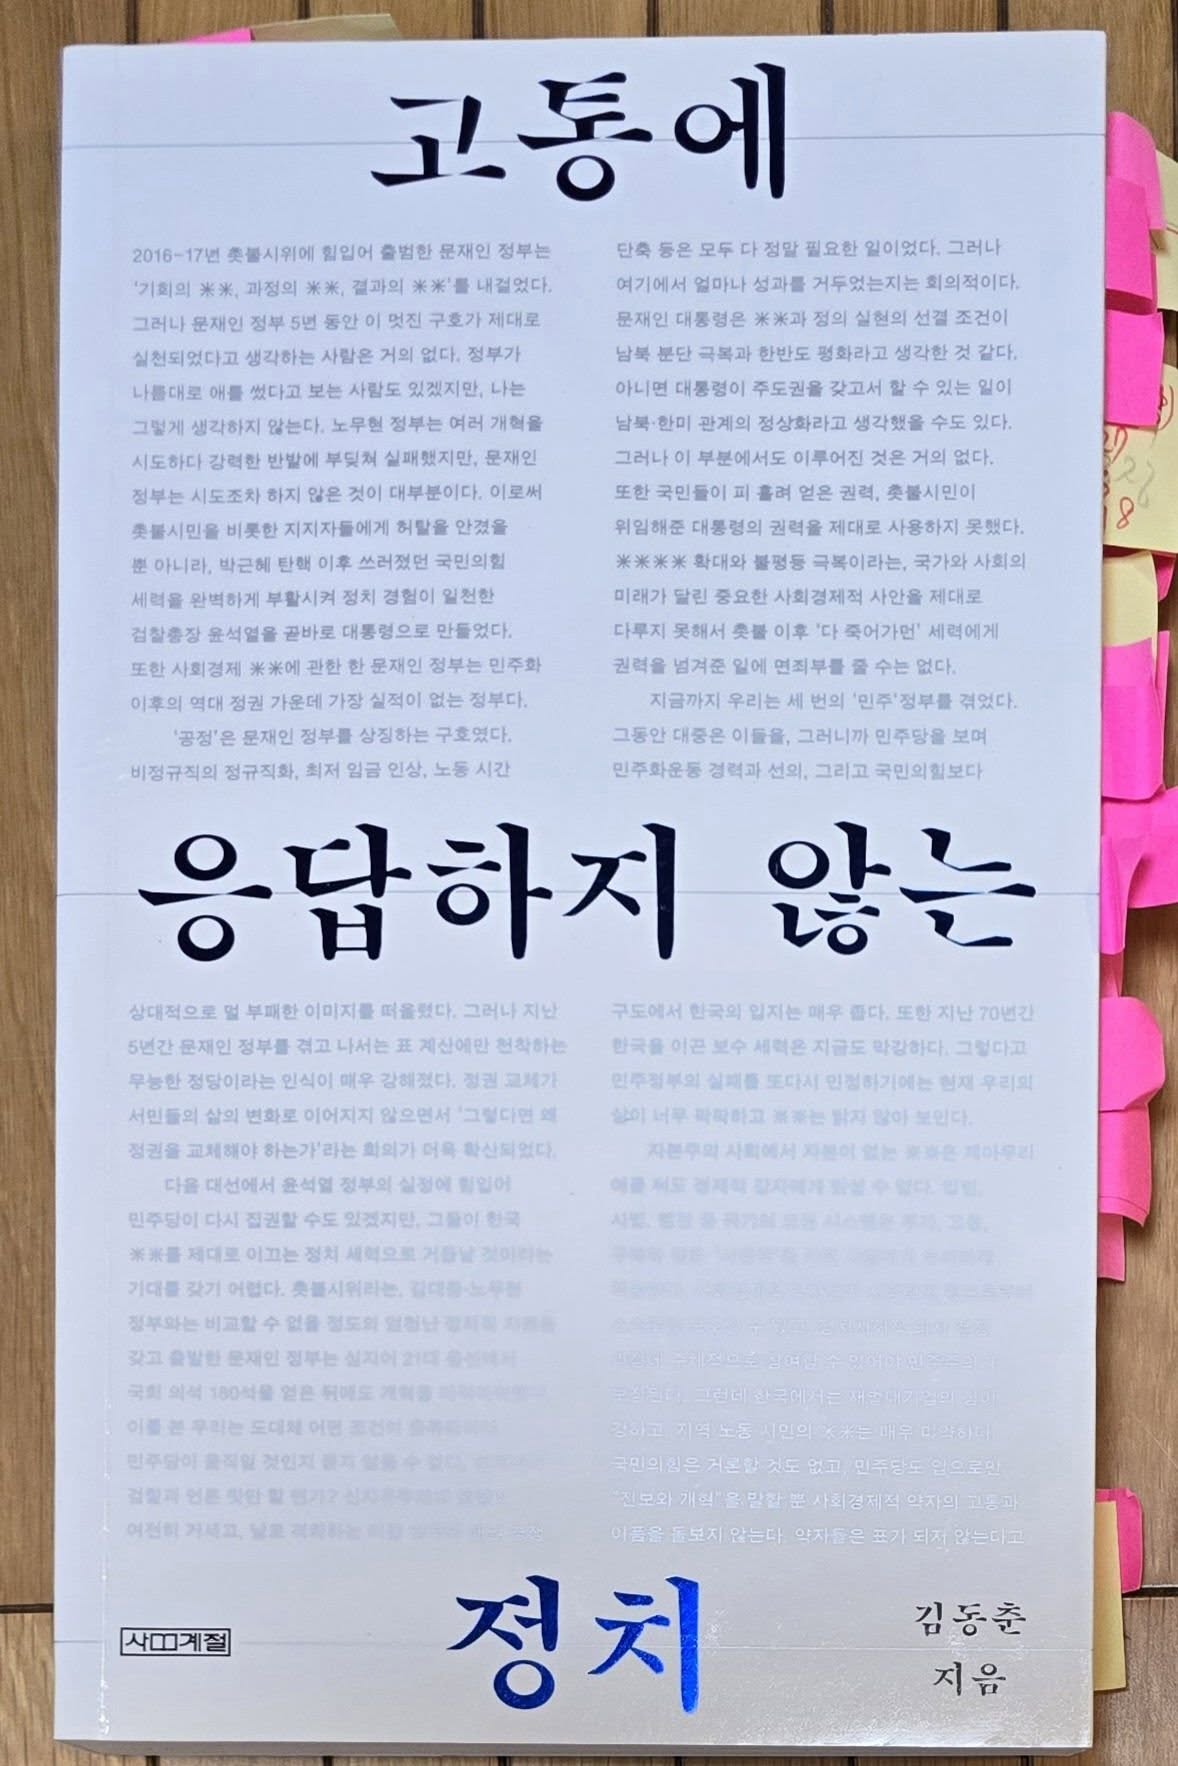 고통에
2016-17년 촛불시위에 힘입어 출범한 문재인 정부는
'기회의 ✳✳, 과정의 ✳✳, 결과의 ✳✳'를 내걸었다.
그러나 문재인 정부 5년 동안 이 멋진 구호가 제대로
실천되었다고 생각하는 사람은 거의 없다. 정부가
나름대로 애를 썼다고 보는 사람도 있겠지만, 나는
그렇게 생각하지 않는다. 노무현 정부는 여러 개혁을
시도하다 강력한 반발에 부딪쳐 실패했지만, 문재인
정부는 시도조차 하지 않은 것이 대부분이다. 이로써
촛불시민을 비롯한 지지자들에게 허탈을 안겼을
뿐 아니라, 박근혜 탄핵 이후 쓰러졌던 국민의힘
세력을 완벽하게 부활시켜 정치 경험이 일천한
검찰총장 윤석열을 곧바로 대통령으로 만들었다.
또한 사회경제 ✳✳에 관한 한 문재인 정부는 민주화
이후의 역대 정권 가운데 가장 실적이 없는 정부다.
'공정'은 문재인 정부를 상징하는 구호였다.
비정규직의 정규직화, 최저 임금 인상, 노동 시간
단축 등은 모두 다 정말 필요한 일이었다. 그러나
여기에서 얼마나 성과를 거두었는지는 회의적이다.
문재인 대통령은 ✳✳과 정의 실현의 선결 조건이
남북 분단 극복과 한반도 평화라고 생각한 것 같다.
아니면 대통령이 주도권을 갖고서 할 수 있는 일이
남북·한미 관계의 정상화라고 생각했을 수도 있다.
그러나 이 부분에서도 이루어진 것은 거의 없다.
또한 국민들이 피 흘려 얻은 권력, 촛불시민이
위임해준 대통령의 권력을 제대로 사용하지 못했다.
✳✳✳✳ 확대와 불평등 극복이라는, 국가와 사회의
미래가 달린 중요한 사회경제적 사안을 제대로
다루지 못해서 촛불 이후 '다 죽어가먼' 세력에게
권력을 넘겨준 일에 면죄부를 줄 수는 없다.
지금까지 우리는 세 번의 '민주'정부를 겪었다.
그동안 대중은 이들을, 그러니까 민주당을 보며
민주화운동 경력과 선의, 그리고 국민의힘보다
응답하지 않는
상대적으로 덜 부패한 이미지를 떠올렸다. 그러나 지난
5년간 문재인 정부를 겪고 나서는 표 계산에만 천착하는
무능한 정당이라는 인식이 매우 강해졌다. 정권 교체가
서민들의 삶의 변화로 이어지지 않으면서 '그렇다면 왜
정권을 교체해야 하는가'라는 회의가 더욱 확산되었다.
다음 대선에서 윤석열 정부의 실정에 힘입어
민주당이 다시 집권할 수도 있겠지만, 그들이 한국
✳✳를 제대로 이끄는 정치 세력으로 거듭날 것이라는
기대를 갖기 어렵다. 촛불시위라는, 김대중·노무현
정부와는 비교할 수 없을 정도의 엄청난 정치적 자원을
갖고 출발한 문재인 정부는 심지어 21대 총선에서
국회 의석 180석을 얻은 뒤에도 개혁을
이를 본 우리는 도대체 어떤 조건이
민주당이 움직일 것인지 묻지 않을 수 없다.
검찰과 언론 탓만 할 텐가?
여전히 거세고, 날로 격화하는
구도에서 한국의 입지는 매우 좁다. 또한 지난 70년간
한국을 이끈 보수 세력은 지금도 막강하다. 그렇다고
민주정부의 실패를 또다시 인정하기에는 현재 우리의
삶이 너무 팍팍하고 ✳✳는 밝지 않아 보인다.
자본주의 사회에서 자본이 없는 ✳✳은 제아무리
애를 써도 경제적 강자에게 맞설 수 없다. 입법,
보장된다. 그런데 한국에서는 재벌대기업의 힘이
강하고, 지역 노동 시민의 ✳✳는 매우 미약하다.
국민의힘은 거론할 것도 없고, 민주당도 입으로만
"진보와 개혁"을 말할 뿐 사회경제적 약자의 고통과
아픔을 돌보지 않는다. 약자들은 표가 되지 않는다고
정치
사계절
김동춘
지음